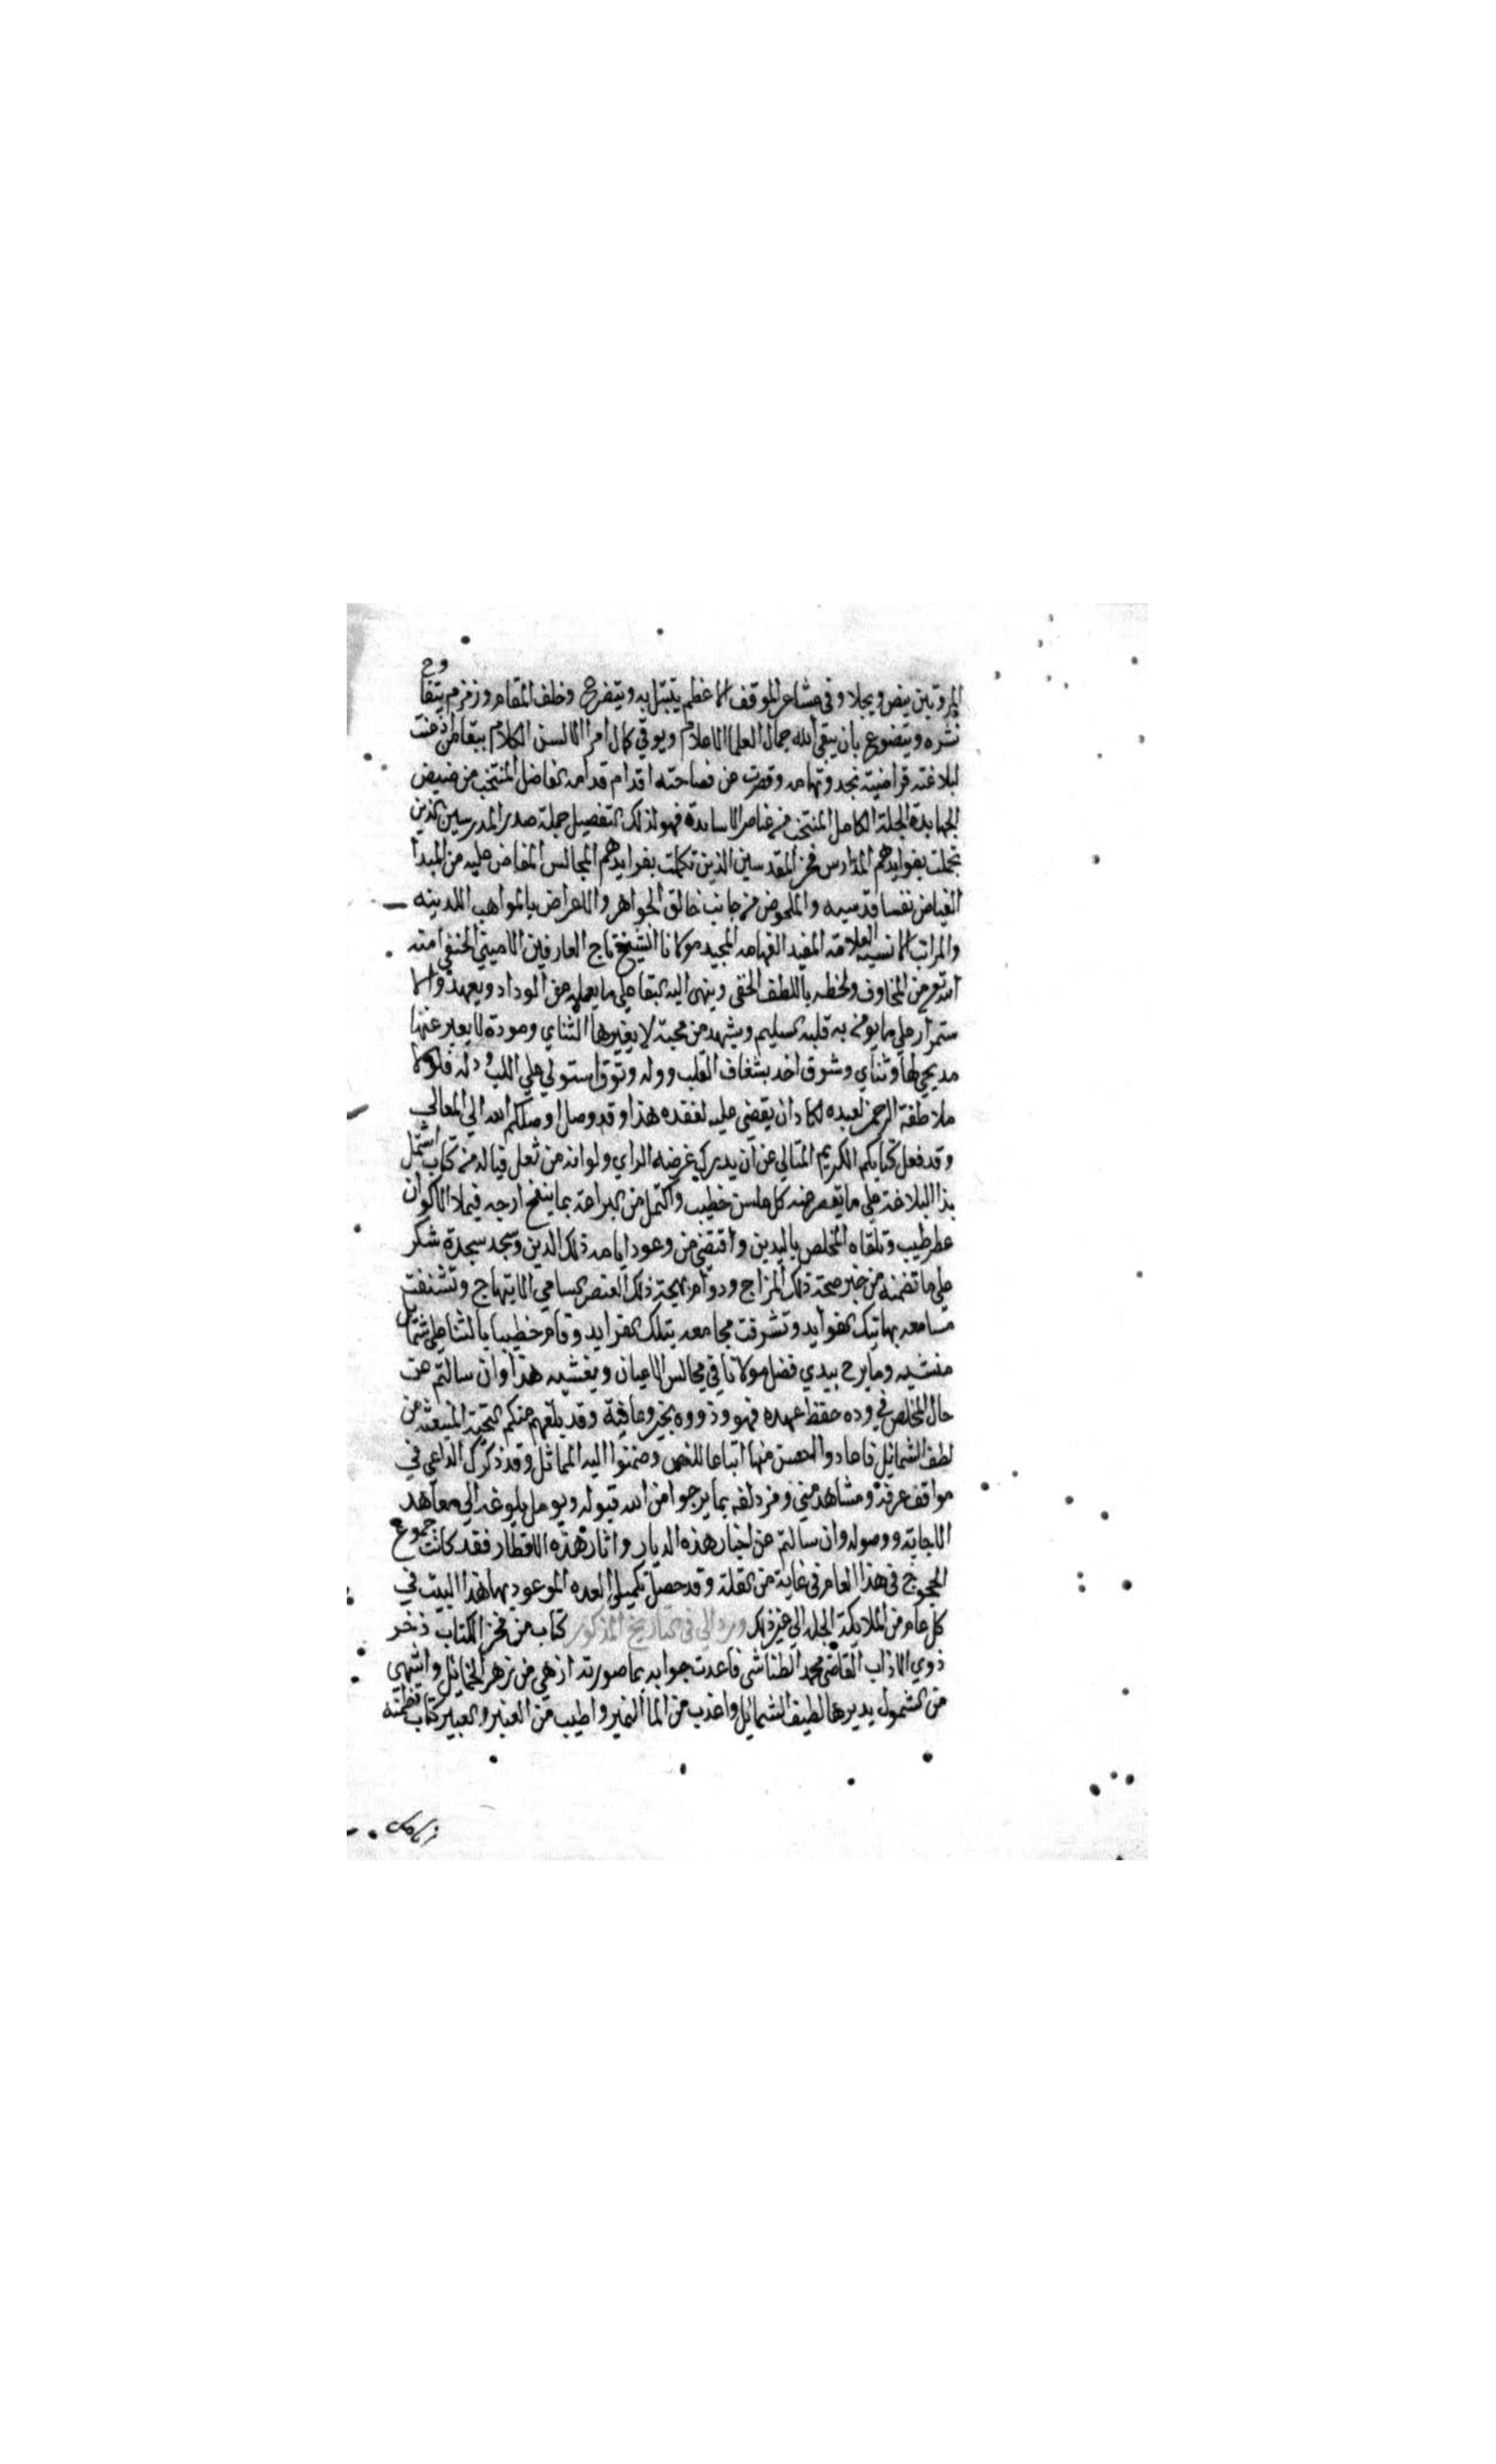 المروتين ينص ويجلا وفي مشاعر الموقف الاعظم يتبتل به ويتضرع وخلف المقام وزمزم يتفاوح
نشره ويتضوع بان يبقي الله جمال العلما الاعلام ويوقي كمال امرا الالسن الكلام ببقا من اذعنت
لبلاغته قراضبة نجد وتهامه وقصرت عن فصاحته اقدام قدامه الفاضل المنتخب من
الجهابدة الجلة الكامل المنتخب من عناصر الاسابدة فهو لذلك التفصيل جملة صدر المدرسين الذين
تجملت بفوايدهم المدارس فخر المقدسين الذين تكملت بفرايدهم المجالس المفاض عليه من المبدا
الفياض نفسا قدسيه والملحوض من جانب خالق الجواهر والاعراض بالمواهب اللدينه
والمراتب الانسيه العلامه المفيد الفهامه المجيد مولانا الشيخ تاج العارفين الاميني الحنفي امنه
الله تع من المخاوف ولحظه باللطف الخفي وينهي اليه البقا علي ما يعلمه من الوداد ويعهد والا
ستمرار علي ما يومن به قلبه السليم ويشهد من محبة لا يغيرها التناي ومودة لا يعبر عنها
مديحي لها وثناي وشوق اخد بشغاف القلب ووله وتوق استولي علي اللب وله فلولا
ملاطفة الرحمن لعبده لكاد ان يقضي عليه لفقده هذا وقد وصل اوصلكم الله الي المعالي
وقد فعل كتابكم الكريم المتالي عن ان يدرك غرضه الراي ولو انه من ثعل فياله من كتاب اشتمل
بذا البلاغة علي ما يقصر عنه كل ملسن خطيب واكتمل من البراعة بما ينفح ارجه فيملا الاكوان
عطر طيب وتلقاه المخلص باليدين واقتضي من وعود ايامه ذلك الدين وسجد سجدة شكر
علي ما تضمنه من خبر صحة ذلك المزاج ودوام بهجة ذلك العنصر السامي الابتهاج وتشنفت
مسامعه بهاتيك الفوايد وتشرفت مجامعه بتلك الفرايد وقام خطيبا بالثنا علي شمايل
منشيه وما برح يبدي فضل مولانا في مجالس الاعيان ويفشيه هذا وان سالتم عن
حال المخلص في وده حفظ عهده فهو وذووه بخير وعافية وقد بلغهم عنكم التحية المنبعثة من
لطف الشمائل فاعادوا احسن منها اتباعا للنص وضمنوا اليه المماثل وقد ذكرك الداعي في
مواقف عرفة ومشاهد مني ومزدلفه بما يرجوا من الله قبوله ويومل بلوغه الي معاهد
الاجابة ووصوله وان سالتم عن اخبار هذه الديار واثار هذه الاقطار فقد كانت جموع
الحجوج في هذا العام في غاية من القلة وقد حصل تكميل العده الموعود بها هذا البيت في
كل عام من الملايكة الجلة الي غير ذلك ورد الي في التاريخ المذكور كتاب من فخر الكتاب ذخر
ذوي الاداب القاضي محمد الطناشي فاعدت جوابه بما صورته ازهي من زهر الخمائل واشهي
من الشمول يديرها لطيف الشمائل واعذب من الما النمير واطيب من العنبر والعبير كتاب نظمته